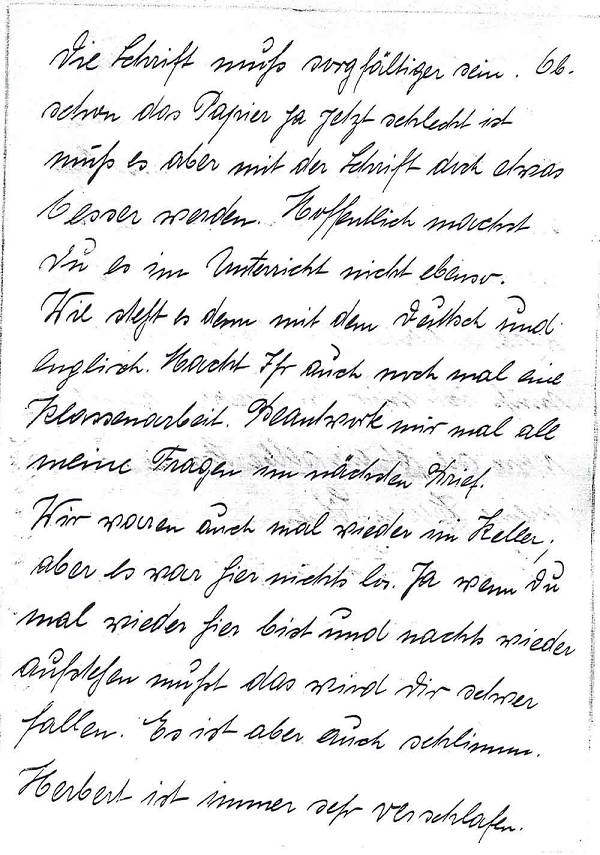 Die Schrift muß sorgfältiger sein. Ob-
schon das Papier ja jetzt schlecht ist
muß es aber mit der Schrift doch etwas
besser werden. Hoffentlich machst
Du es im Unterricht nicht ebenso.
Wie steht es denn mit dem Deutsch und
Englisch. Macht Ihr auch noch mal eine
Klassenarbeit. Beantworte mir mal all
meine Fragen im nächsten Brief.
Wir waren auch mal wieder im Keller,
aber es war hier nichts los. Ja wenn Du
mal wieder hier bist und nachts wieder
aufstehen mußt das wird dir schwer
fallen. Es ist aber auch schlimm.
Herbert ist immer sehr verschlafen.